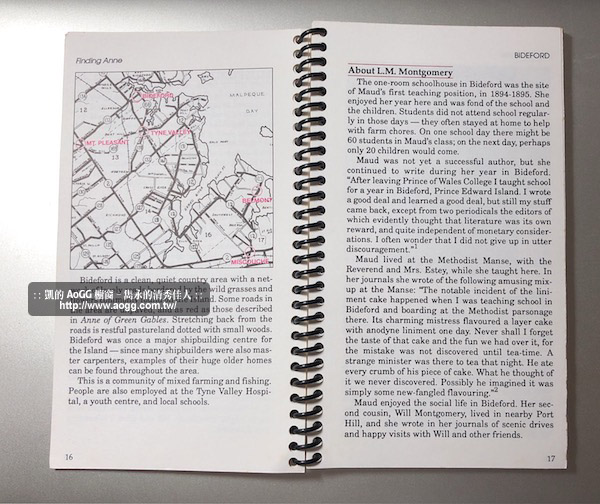 Finding Anne
MALPEQUE
BAY
BIDEFORD
TYNE VALLEY
MT. PLEASANT
12
13
BELMONT
MISCOUCHE
Bideford is a clean, quiet country area with a net-
by the wild grasses and
land. Some roads in
the area are and as red as those described
in Anne of Green Gables. Stretching back from the
roads is restful pastureland dotted with small woods.
Bideford was once a major shipbuilding centre for
the Island — since many shipbuilders were also mas-
ter carpenters, examples of their huge older homes
can be found throughout the area.
This is a community of mixed farming and fishing.
People are also employed at the Tyne Valley Hospi-
tal, a youth centre, and local schools.
16
:: 凱的 AoGG 櫥窗 - 雋永的清秀佳人 ::
http://www.aogg.com.tw/
BIDEFORD
About L.M. Montgomery
The one-room schoolhouse in Bideford was the site
of Maud's first teaching position, in 1894-1895. She
enjoyed her year here and was fond of the school and
the children. Students did not attend school regular-
ly in those days — they often stayed at home to help
with farm chores. On one school day there might be
60 students in Maud's class; on the next day, perhaps
only 20 children would come.
Maud was not yet a successful author, but she
continued to write during her year in Bideford.
"After leaving Prince of Wales College I taught school
for a year in Bideford, Prince Edward Island. I wrote
a good deal and learned a good deal, but still my stuff
came back, except from two periodicals the editors of
which evidently thought that literature was its own
reward, and quite independent of monetary consider-
ations. I often wonder that I did not give up in utter
discouragement."1
Maud lived at the Methodist Manse, with the
Reverend and Mrs. Estey, while she taught here. In
her journals she wrote of the following amusing mix-
up at the Manse: "The notable incident of the lini-
ment cake happened when I was teaching school in
Bideford and boarding at the Methodist parsonage
there. Its charming mistress flavoured a layer cake
with anodyne liniment one day. Never shall I forget
the taste of that cake and the fun we had over it, for
the mistake was not discovered until tea-time. A
strange minister was there to tea that night. He ate
every crumb of his piece of cake. What he thought of
it we never discovered. Possibly he imagined it was
simply some new-fangled flavouring."2
Maud enjoyed the social life in Bideford. Her sec-
ond cousin, Will Montgomery, lived in nearby Port
Hill, and she wrote in her journals of scenic drives
and happy visits with Will and other friends.
17